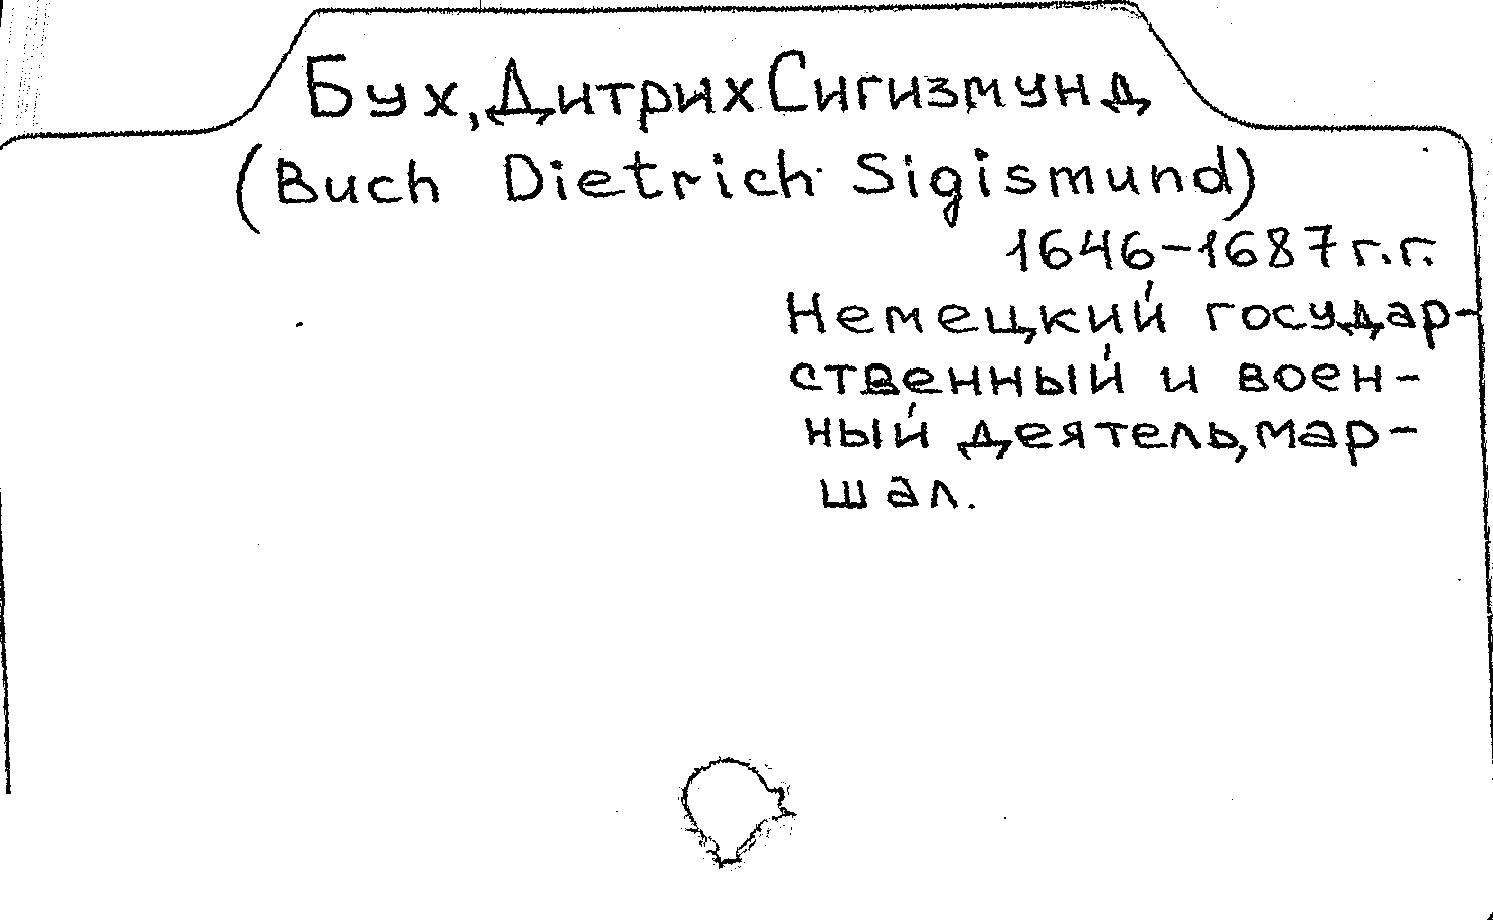 Бух, Дитрих Сигизмунд
(Buch Dietrich Sigismund)
1646-1687 г.г.
Немецкий государ-
ственный и воен-
ный деятель, мар-
шал.